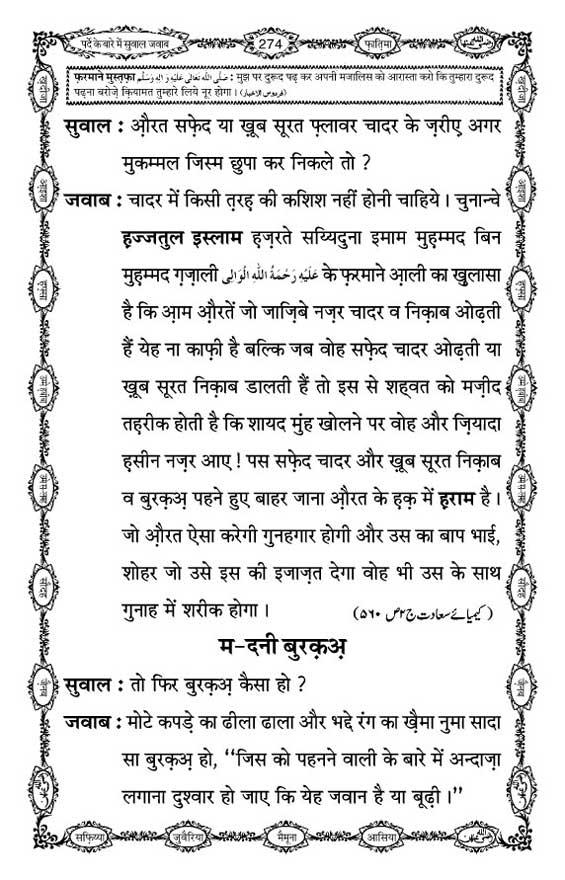 पर्दे के बारे में सुवाल जवाब
274
फ़ातिमा
फ़रमाने मुस्तफ़ा صَلَّى اللهُ تَعَالٰى عَلَيْهِ وَاٰلِهٖ وَسَلَّم : मुझ पर दुरूद पढ़ कर अपनी मजालिस को आरास्ता करो कि तुम्हारा दुरूद
पढ़ना बरोज़े क़ियामत तुम्हारे लिये नूर होगा । (فردوس الاخبار)
सुवाल : औ़रत सफ़ेद या ख़ूब सूरत फ़्लावर चादर के ज़रीए अगर
मुकम्मल जिस्म छुपा कर निकले तो ?
जवाब : चादर में किसी त़रह़ की कशिश नहीं होनी चाहिये । चुनान्चे
ह़ुज्जतुल इस्लाम ह़ज़रते सय्यिदुना इमाम मुह़म्मद बिन
मुह़म्मद ग़ज़ाली عَلَيْهِ رَحْمَةُ اللهِ الْوَالِى के फ़रमाने आ़ली का ख़ुलासा
है कि आ़म औ़रतें जो जाज़िबे नज़र चादर व निक़ाब ओढ़ती
हैं येह ना काफ़ी है बल्कि जब वोह सफ़ेद चादर ओढ़ती या
ख़ूब सूरत निक़ाब डालती हैं तो इस से शह्वत को मज़ीद
तह़रीक होती है कि शायद मुंह खोलने पर वोह और ज़ियादा
ह़सीन नज़र आए ! पस सफ़ेद चादर और ख़ूब सूरत निक़ाब
व बुरक़अ़ पहने हुए बाहर जाना औ़रत के ह़क़ में ह़राम है ।
जो औ़रत ऐसा करेगी गुनहगार होगी और उस का बाप भाई,
शोहर जो उसे इस की इजाज़त देगा वोह भी उस के साथ
गुनाह में शरीक होगा ।  (کیمیائے سعادت ج۲ ص ۵۶۰)
म-दनी बुरक़अ़
सुवाल : तो फिर बुरक़अ़ कैसा हो ?
जवाब : मोटे कपड़े का ढीला ढाला और भद्दे रंग का ख़ैमा नुमा सादा
सा बुरक़अ़ हो, ‘‘जिस को पहनने वाली के बारे में अन्दाज़ा
लगाना दुश्वार हो जाए कि येह जवान है या बूढ़ी ।’’
सफ़िय्या
जुवैरिया
मैमूना
आसिया